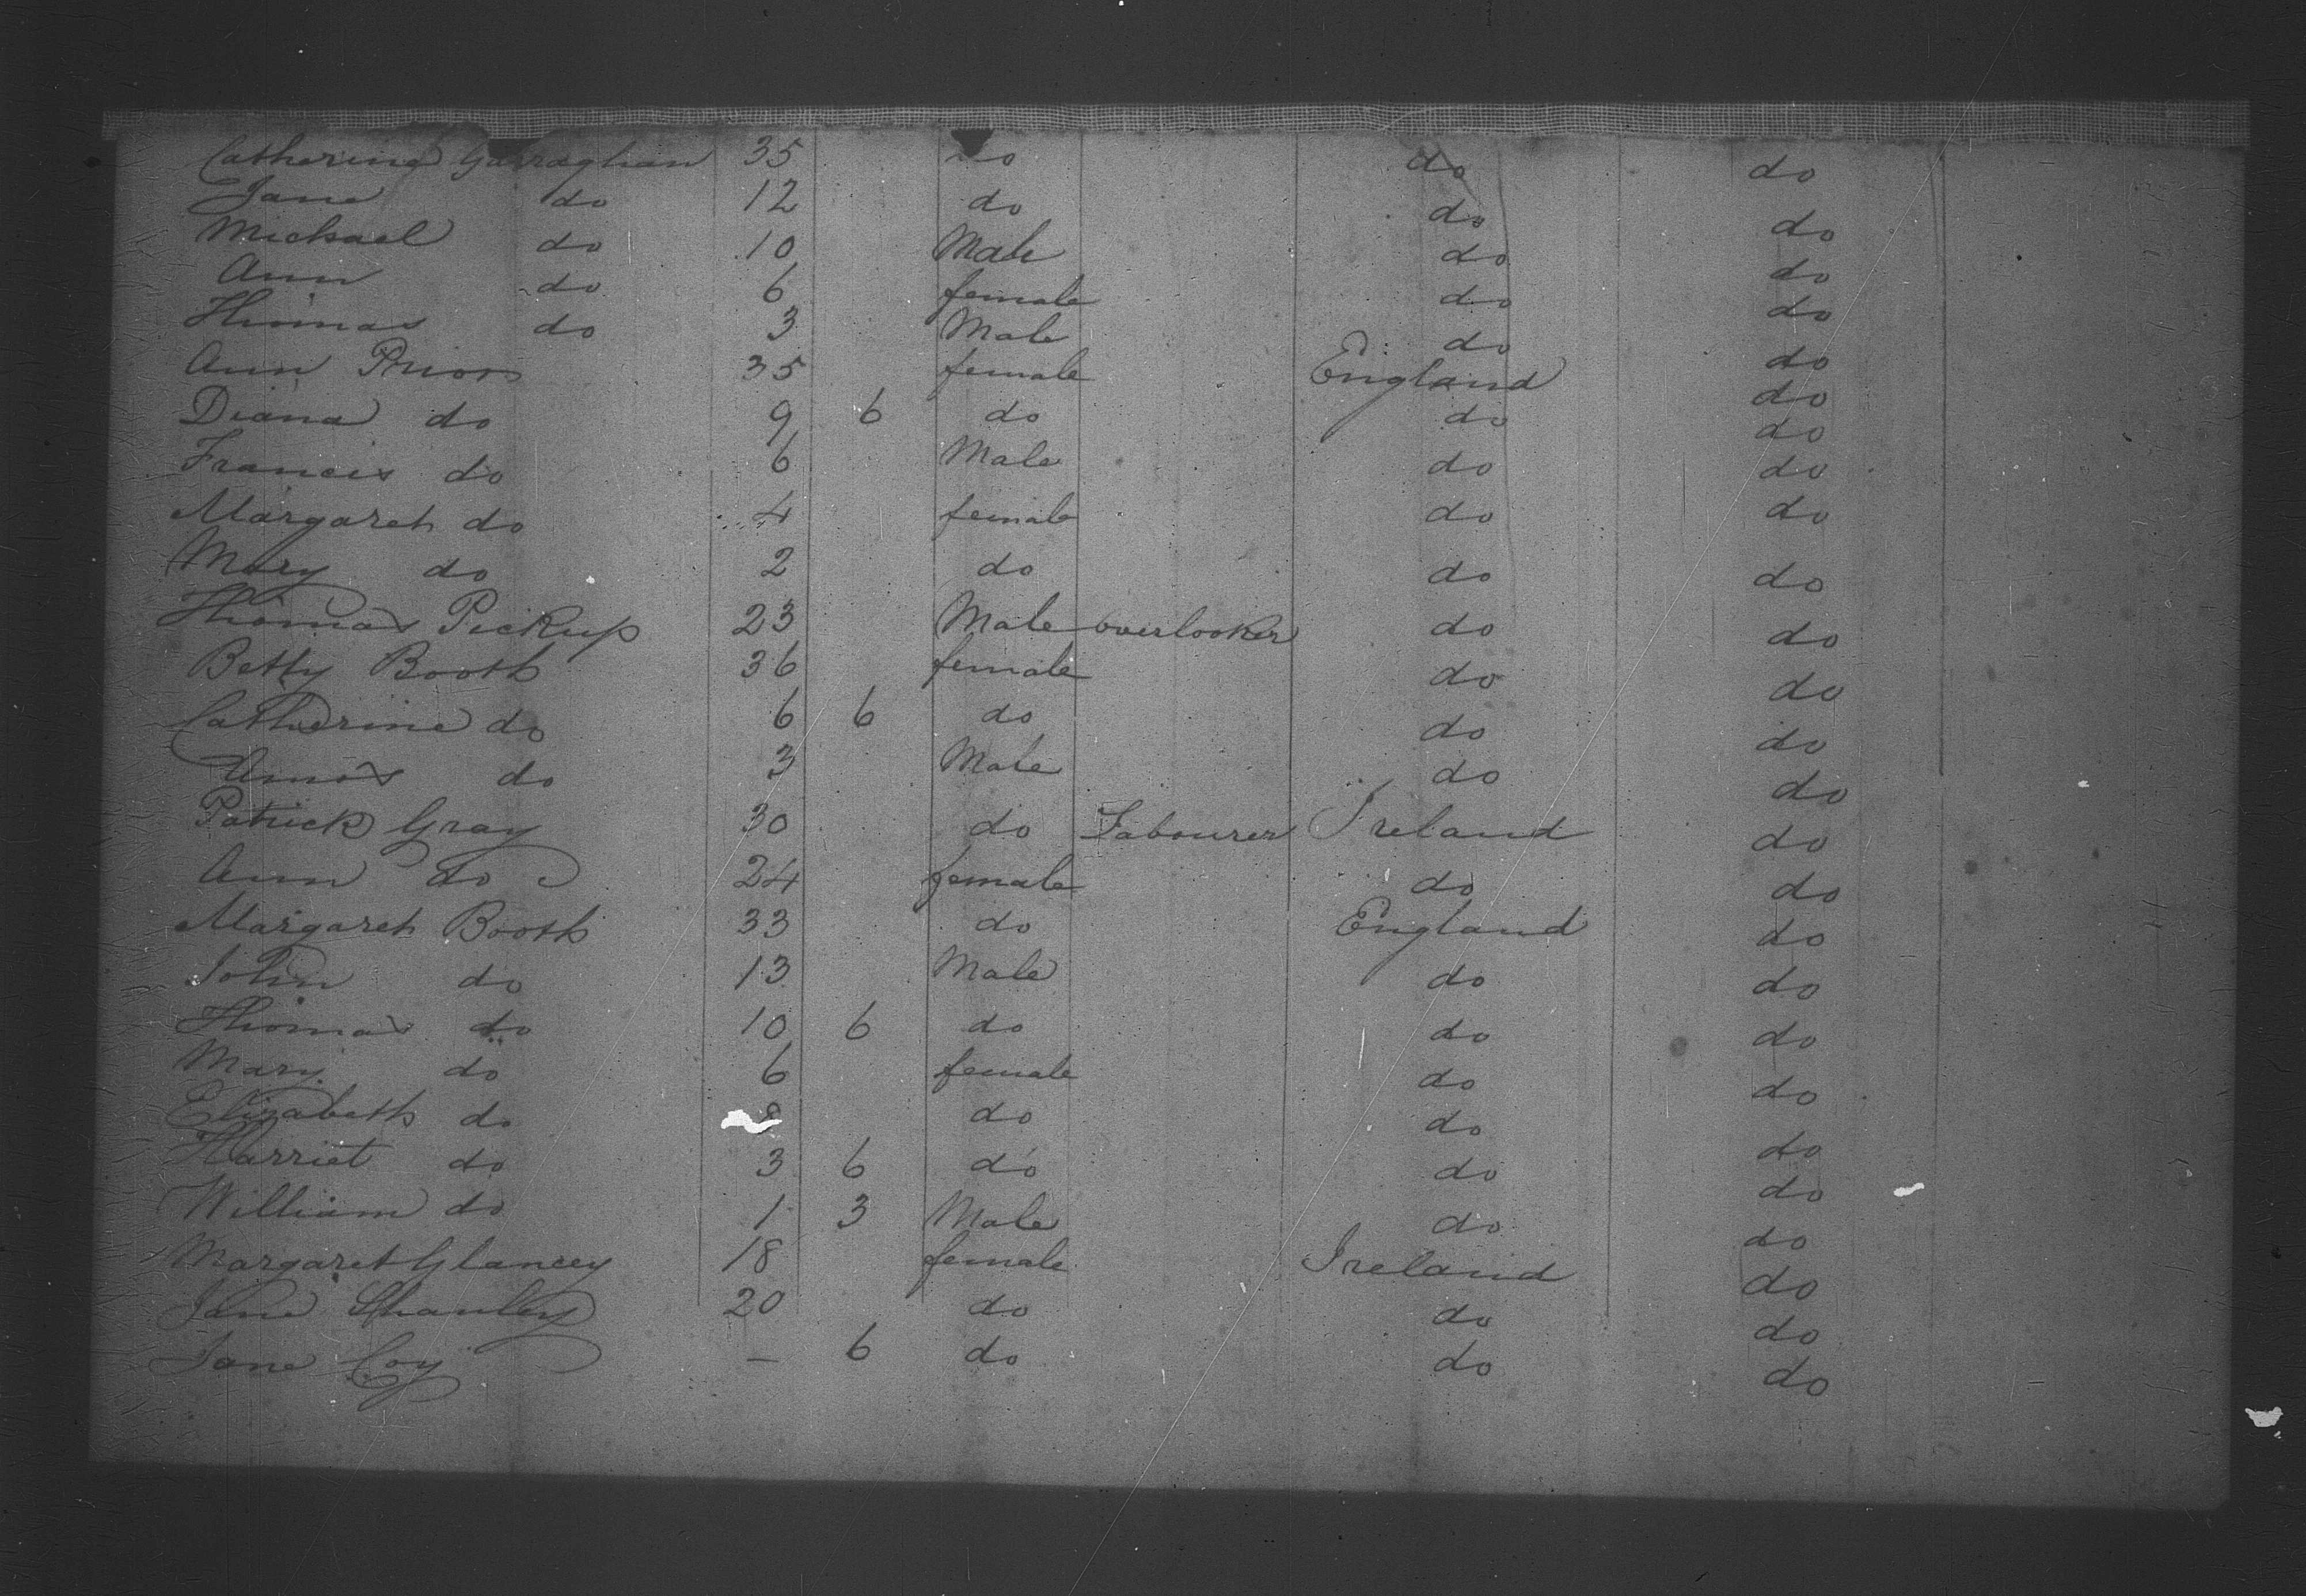 Catherine Garraghan 35 do do do
Jane do 12 do do do
Michael do 10 Male do do
Ann do 6 female do do
Thomas do 3 Male do do
Ann Prior 35 female England do
Diana do 9 6 do do do
Francis do 6 Male do do
Margaret do 4 female do do
Mary do 2 do do do
Thomas Pickup 23 Male overlooker do do
Betty Booth 36 female do do
Catherine do 6 6 do do do
Amos do 3 Male do do
Patrick Gray 30 do Labourer Ireland do
Ann do 24 female do do
Margaret Booth 33 do England do
John do 13 Male do do
Thomas do 10 6 do do do
Mary do 6 female do do
Elizabeth do do do do
Harriet do 3 6 do do do
William do 1 3 Male do do
Margaret Glancey 18 female Ireland do
Jane Shanley 20 do do do
Jane Coy — 6 do do do